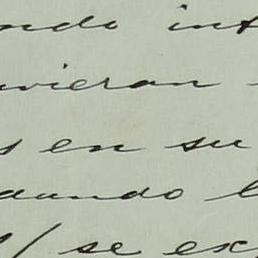 ndo int
vieran
s en su
dando l
/ se ex